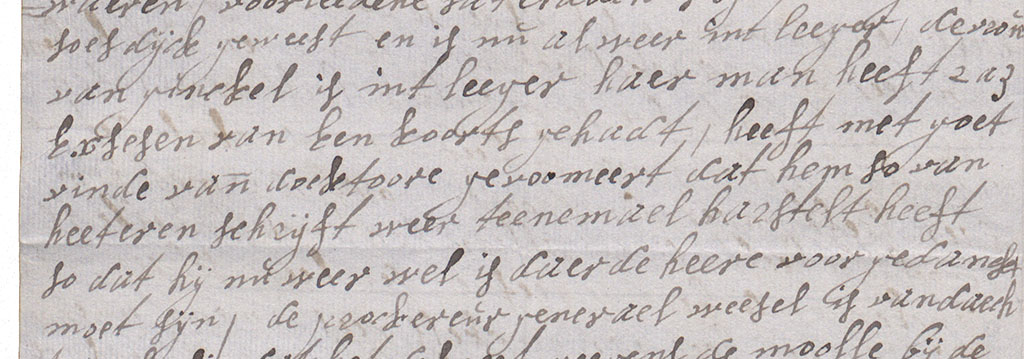 waeren, voorleedene saterdach
soesdijck geweest en is nu al weer int leeger, de vrou
van ginckel is int leeger haer man heeft 2 a 3
exsesen van een koorts gehadt, heeft met goet
vinde van docktoore gevoomeert dat hem so van
heeteren schrijft weer teenemael harstelt heeft
so dat hij nu weer wel is daer de heere voor gedanckt
moet sijn, de prockereur generael weesel is vandaech
de moolle bij de